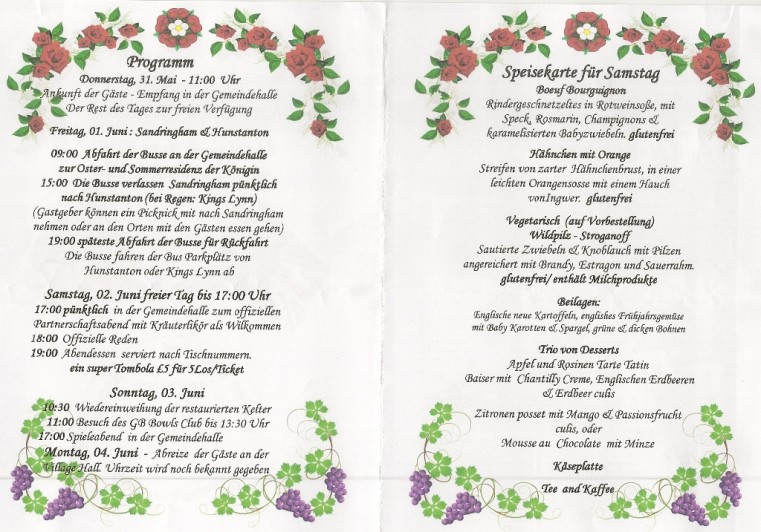 Programm
Donnerstag, 31. Mai - 11:00 Uhr
Ankunft der Gäste - Empfang in der Gemeindehalle
Der Rest des Tages zur freien Verfügung
Freitag, 01. Juni : Sandringham & Hunstanton
09:00 Abfahrt der Busse an der Gemeindehalle
zur Oster- und Sommerresidenz der Königin
15:00 Die Busse verlassen Sandringham pünktlich
nach Hunstanton (bei Regen: Kings Lynn)
(Gastgeber können ein Picknick mit nach Sandringham
nehmen oder an den Orten mit den Gästen essen gehen)
19:00 späteste Abfahrt der Busse für Rückfahrt
Die Busse fahren der Bus Parkplätz von
Hunstanton oder Kings Lynn ab
Samstag, 02. Juni freier Tag bis 17:00 Uhr
17:00 pünktlich in der Gemeindehalle zum offiziellen
Partnerschaftsabend mit Kräuterlikör als Wilkommen
18:00 Offizielle Reden
19:00 Abendessen serviert nach Tischnummern.
ein super Tombola £5 für 5Los/Ticket
Sonntag, 03. Juni
10:30 Wiedereinweihung der restaurierten Kelter
11:00 Besuch des GB Bowls Club bis 13:30 Uhr
17:00 Spieleabend in der Gemeindehalle
Montag, 04. Juni - Abreize der Gäste an der
Village Hall. Uhrzeit wird noch bekannt gegeben
Speisekarte für Samstag
Boeuf Bourguignon
Rindergeschnetzeltes in Rotweinsoße, mit
Speck, Rosmarin, Champignons &
karamelisierten Babyzwiebeln. glutenfrei
Hähnchen mit Orange
Streifen von zarter Hähnchenbrust, in einer
leichten Orangensosse mit einem Hauch
vonIngwer. glutenfrei
Vegetarisch (auf Vorbestellung)
Wildpilz - Stroganoff
Sautierte Zwiebeln & Knoblauch mit Pilzen
angereichert mit Brandy, Estragon und Sauerrahm.
glutenfrei/ enthält Milchprodukte
Beilagen:
Englische neue Kartoffeln, englishes Frühjahrsgemüse
mit Baby Karotten & Spargel, grüne & dicken Bohnen
Trio von Desserts
Apfel und Rosinen Tarte Tatin
Baiser mit Chantilly Creme, Englischen Erdbeeren
& Erdbeer culis
Zitronen posset mit Mango & Passionsfrucht
culis, oder
Mousse au Chocolate mit Minze
Käseplatte
Tee and Kaffee